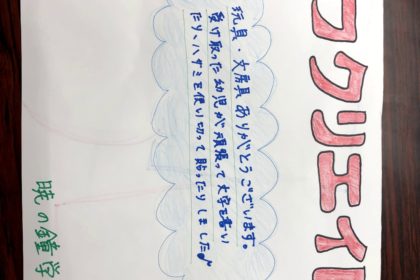 クリエイ
玩具・文房具 ありがとうございます。
受け取った幼児が頑張って文字を書い
たり、ハサミを使い切って貼ったりしました♪
暁の鐘学